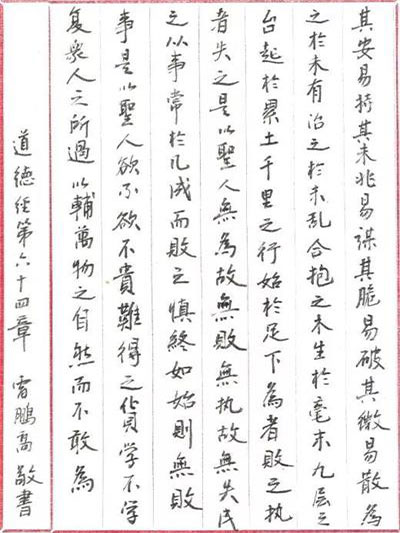 其安易持其未兆易谋其脆易破其微易散為
之於未有治之於未乱合抱之木生於毫末九层之
台起於累土千里之行始於足下為者敗之执
者失之是以聖人無為故無敗無执故無失民
之以事常於几成而敗之慎終如始則無敗
事是以聖人欲不欲不貴難得之貨学不学
复衆人之所過以輔萬物之自然而不敢為
道德经第六十四章 雷鵬高敬書